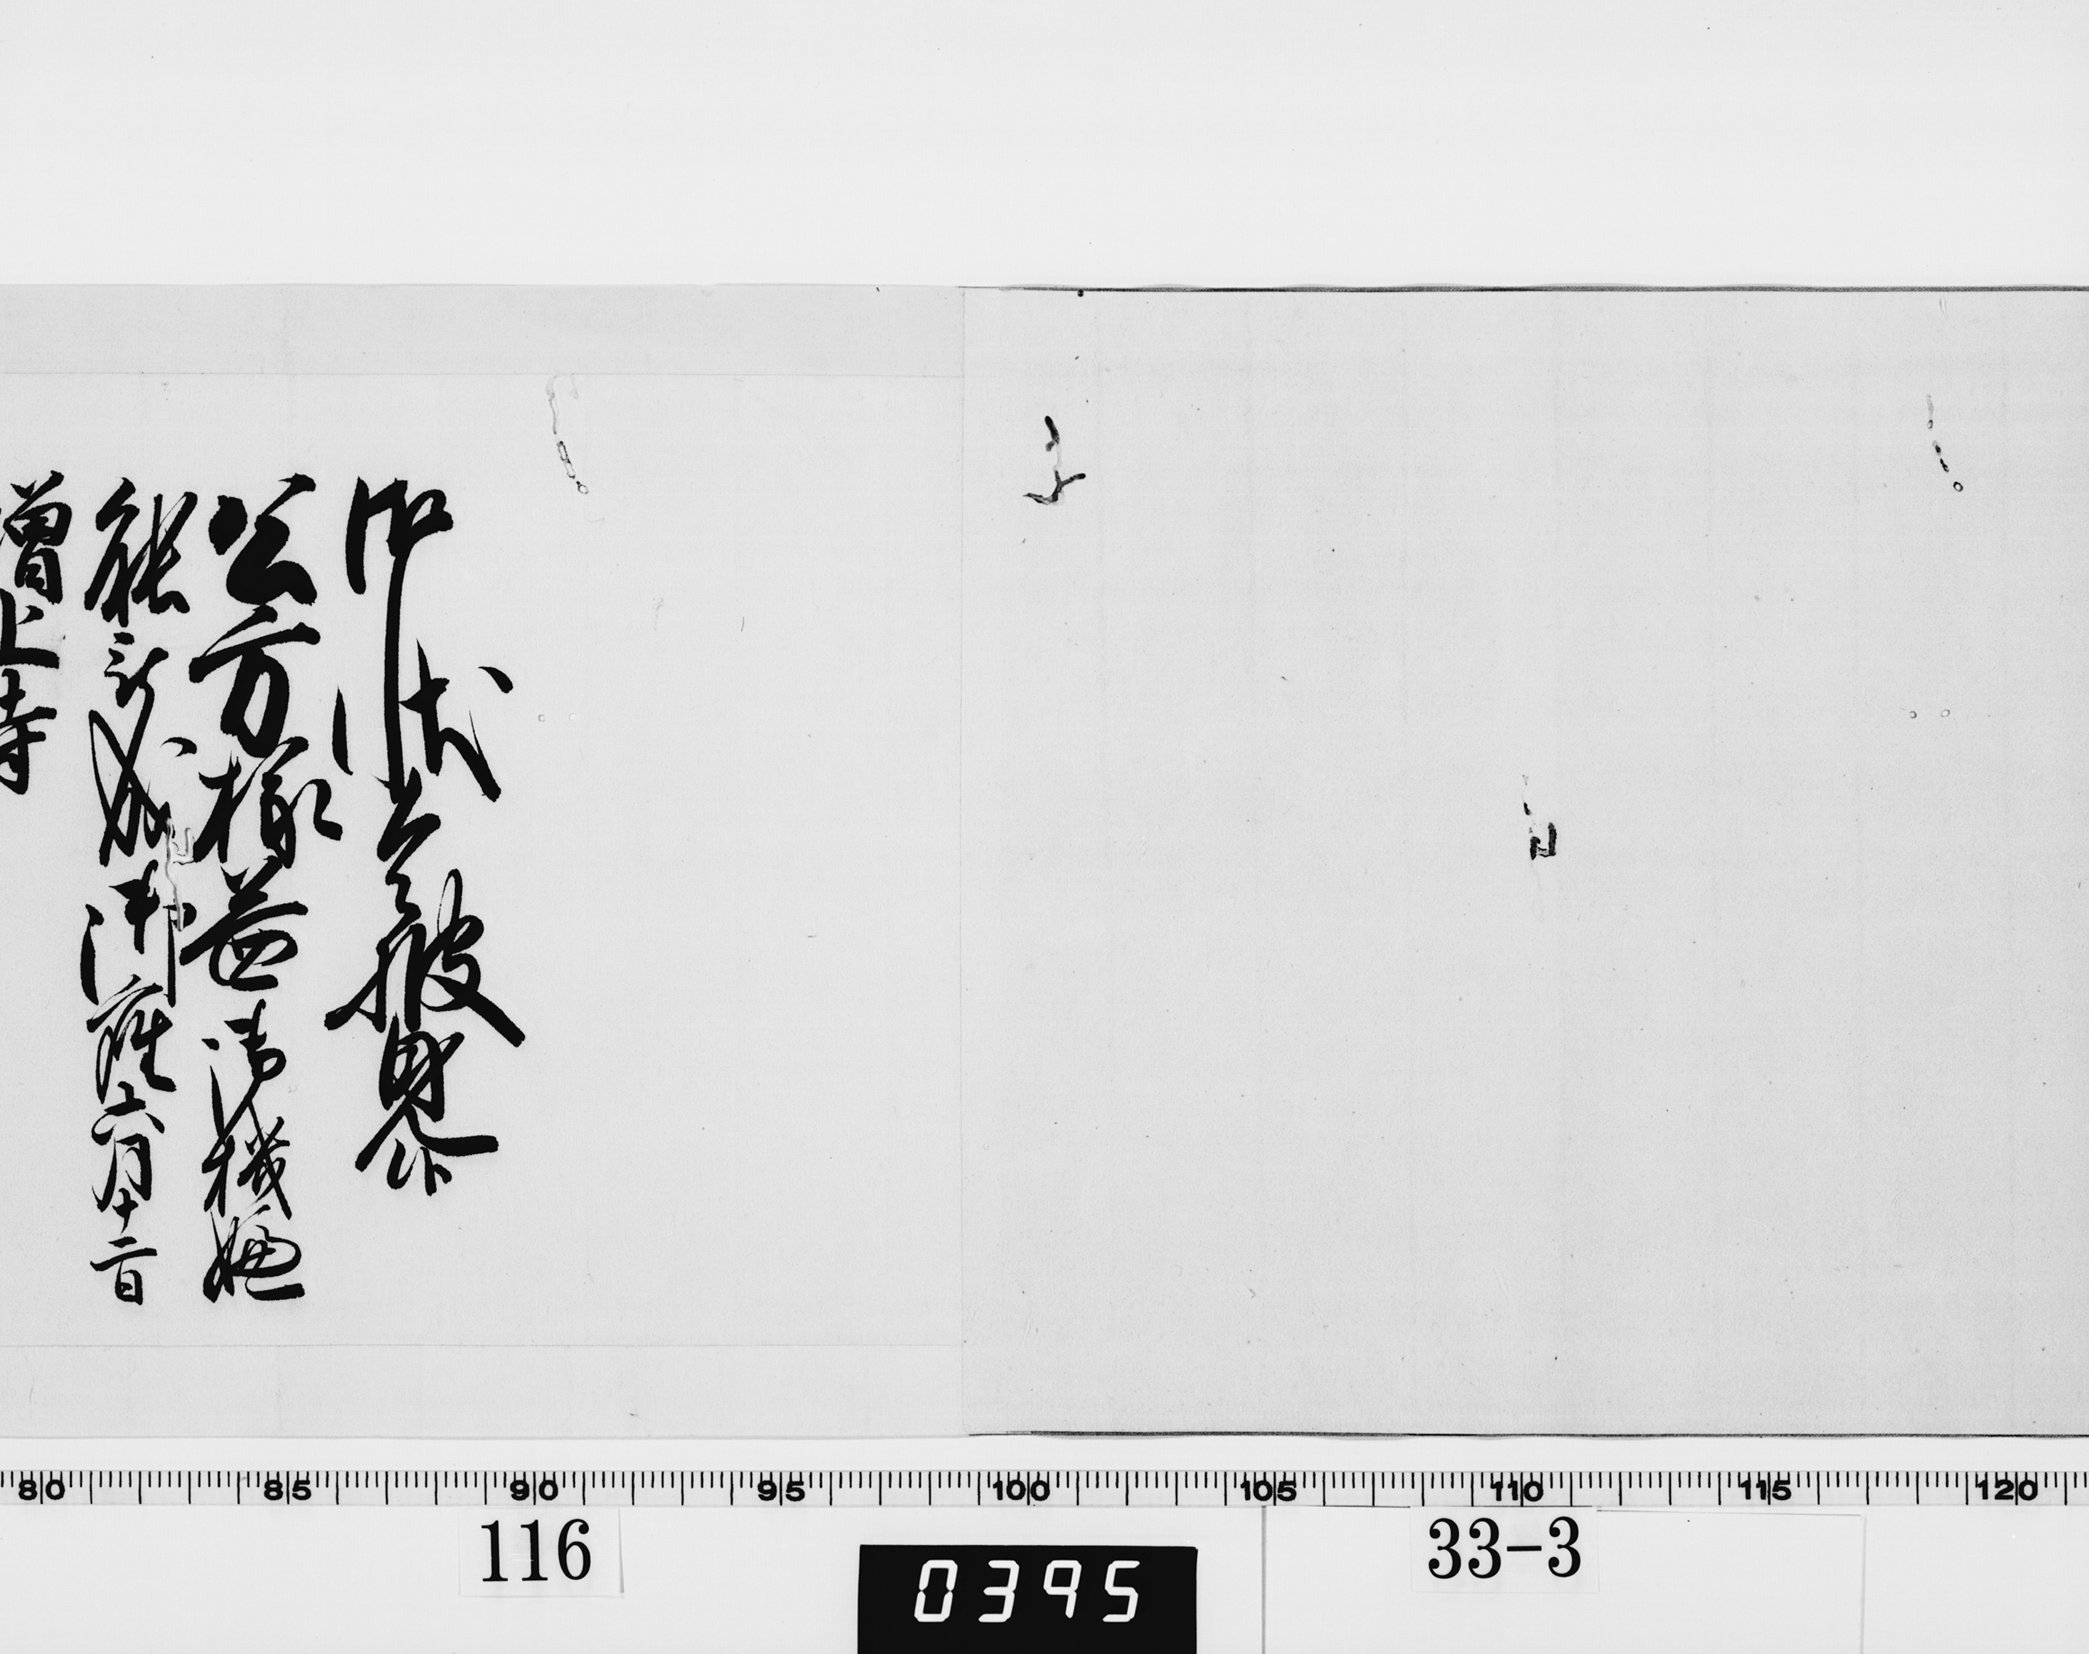 御状令披見候
公方様益御機嫌
能被成御座六月十二日
増上寺
80 85 90 95 100 105 110 115 120
116
0395
33-3